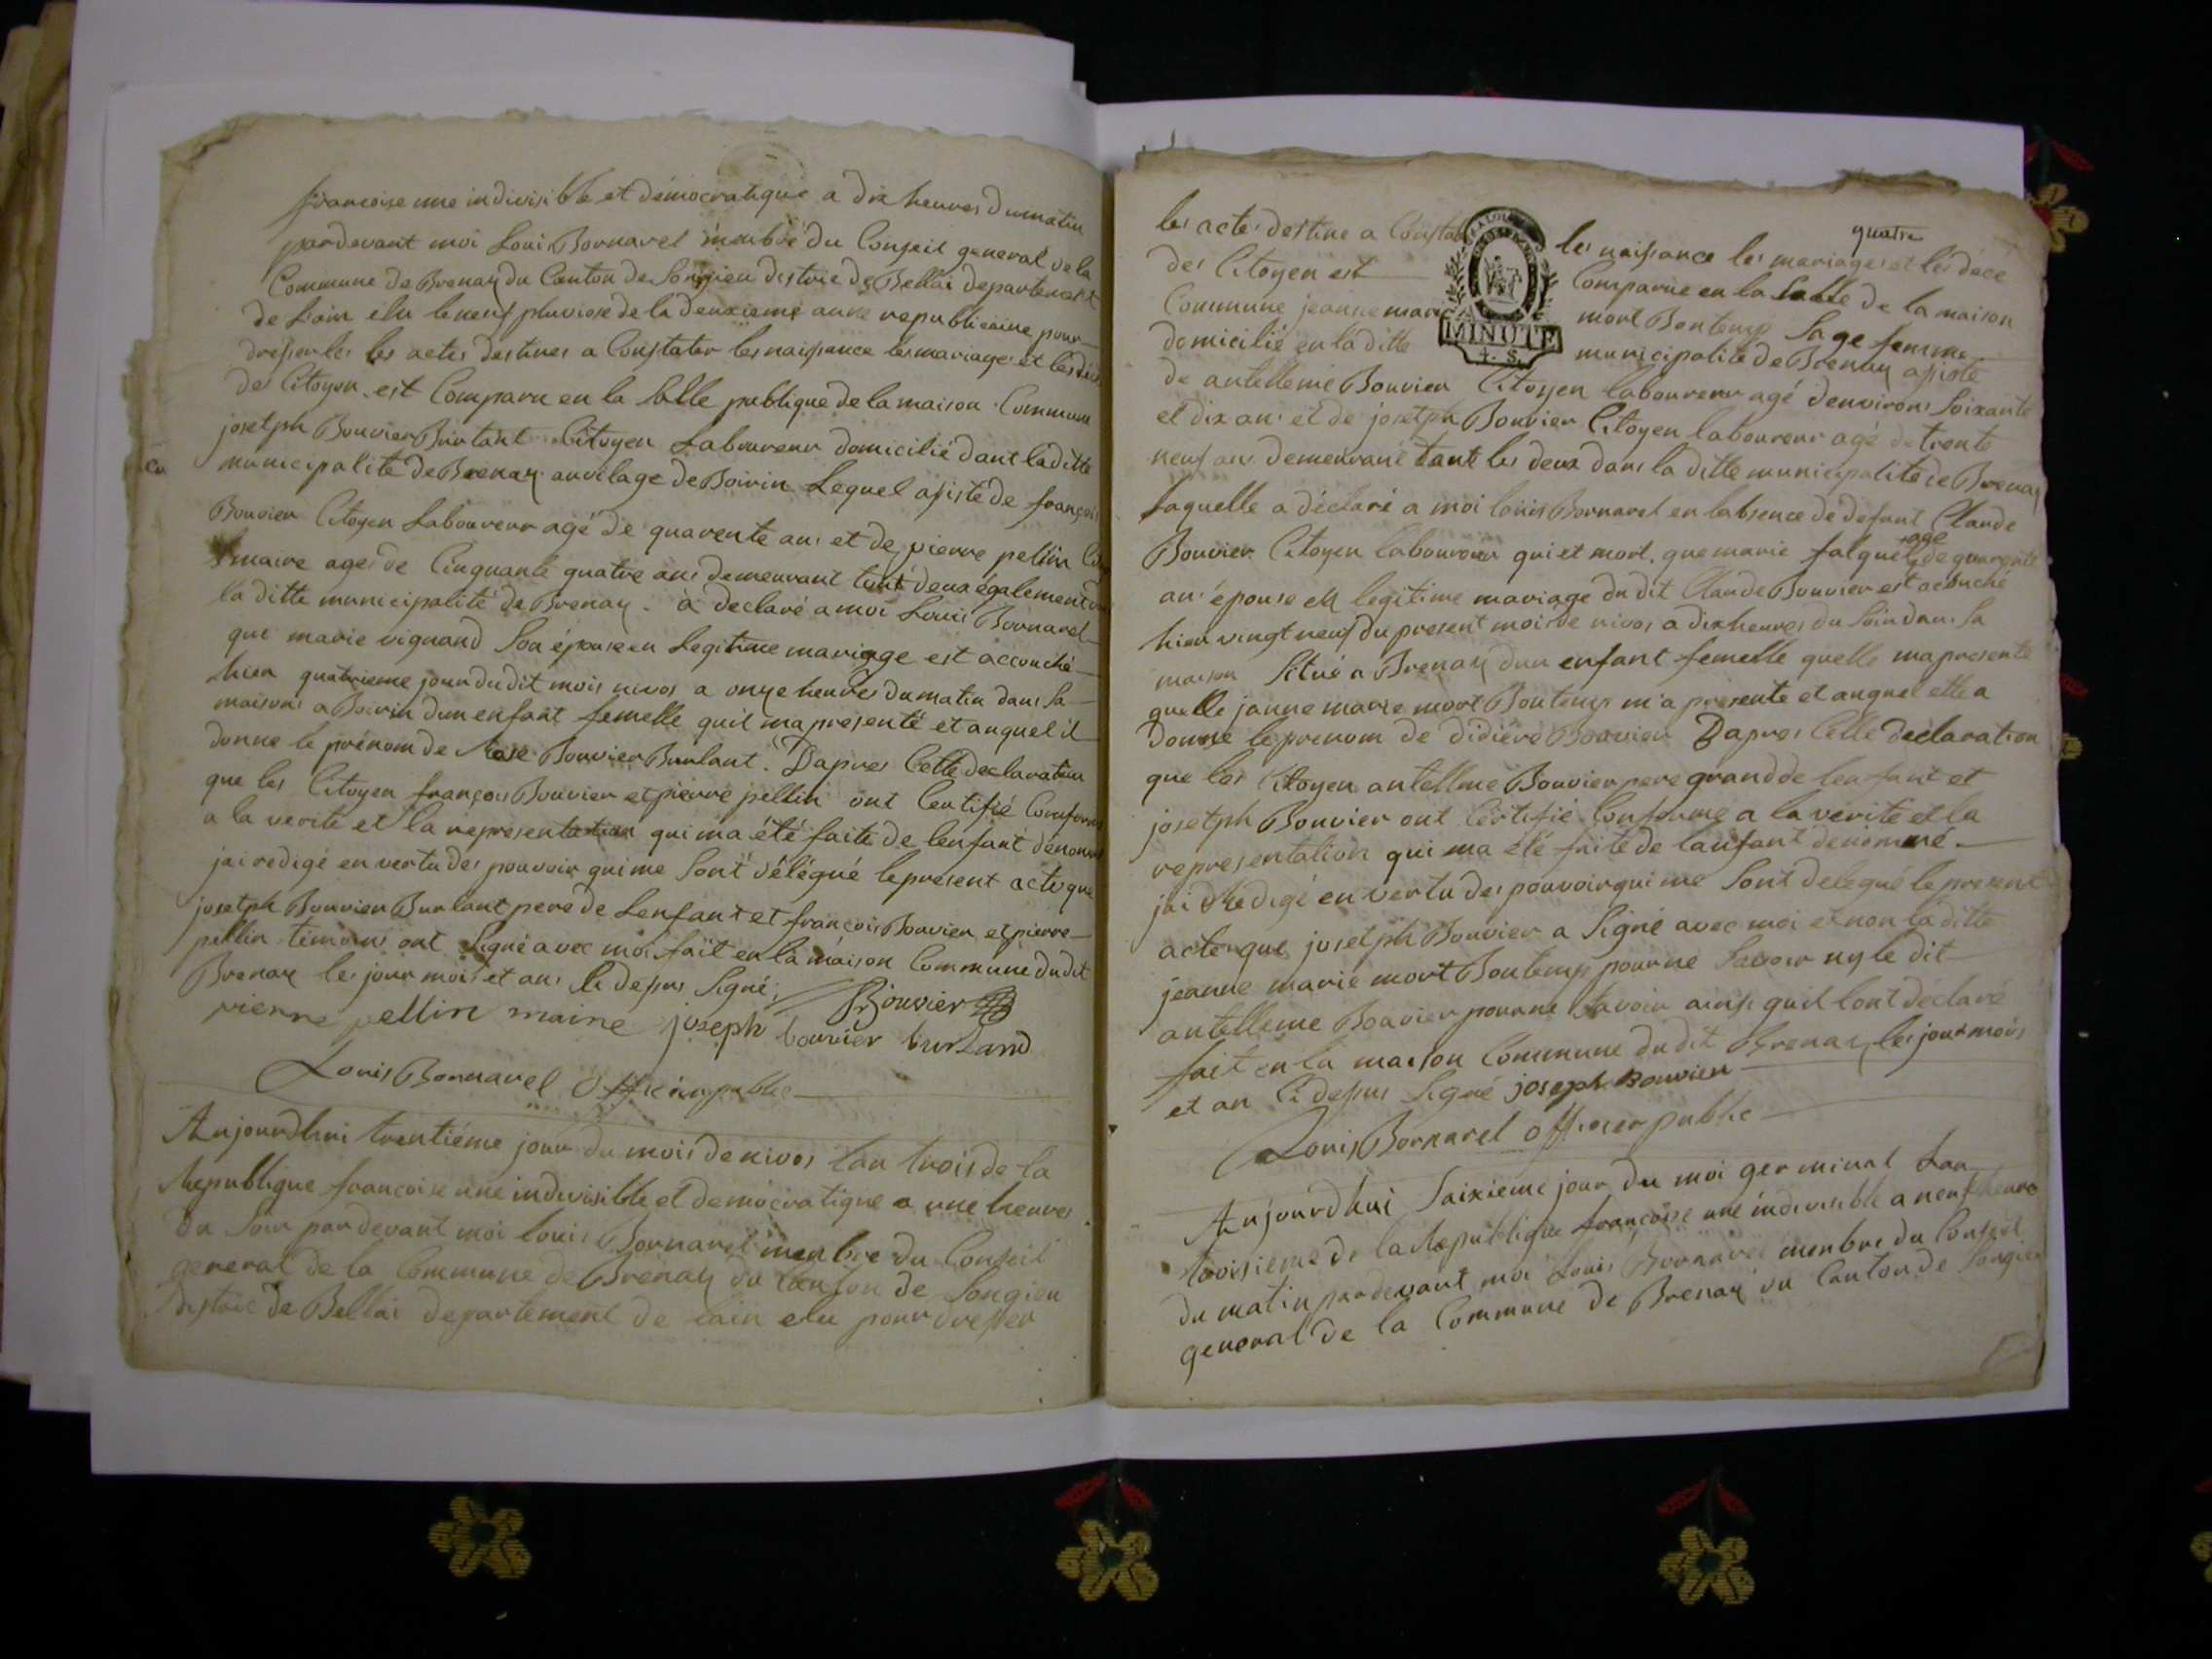 françoise une indivisible et démocratique a dix heures dumatin
pardevant moi Loui Bornarel membre du Conseil general de la
Commune de Brenay du Canton de Songieu destrie de Bellai departement
de Lain elu le neuf pluviose de la deuxieme anne republicaine pour
dresser les les actes destines a Constater les naissance les mariage et les
des Citoyen est Comparu en la salle publique de la maison Commune
josetph Bouvier Burlant Citoyen Laboureur domicilié dant la ditte
municipalité de Brenay au vilage de Boirin Lequel assisté de françois
Bouvier Citoyen Laboureur agé de quarente ans et de pierre pellin
maire ages de Cinquante quatre ans demeurant tout deux également
la ditte municipalité de Brenay. à declaré a moi Louis Bornarel
que marie vignand Son épouse en Legitime mariage est accouché
hier quatrieme jour du dit mois nivos a onze heures du matin dans sa
maisons a Boirin dun enfant femelle quil ma presenté et auquel il
donne le prénom de Rose Bouvier Burlant. Dapres Cette declaration
que les Citoyen françois Bouvier et pierre pellin ont Certifié Conforme
a la verité et la representation qui ma été faite de lenfant dénommé
jai redigé en vertu des pouvoir qui me Sont délégué le present acte que
josetph Bouvier Burlant pere de Lenfant et françois Bouvier et pierre
pellin témoins ont Signé avec moi fait en la maison Commune du dit
Brenay les jour mois et ans Ci desus Signé; Bouvier
pierre pellin maire joseph bouvier burland
Louis Bornarel Officier public
Aujourdhui trentiéme jour du mois de nivos lan trois de la
Republique francoise une indivisible et democratique a une heures
du Soir par devant moi louis Bornarel menbre du Conseil
general de la Commune de Brenay du Canton de Songieu
destrie de Bellai departement de lain elu pour dresser
quatre
les actes destine a Constater les naissance les mariages et les décé
MINUTE
4. S.
des Citoyen est Comparue en la Salle de la maison
Commune jeanne marie mort Bontemp Sage femme
domicilié en la ditte municipalité de Brenay assisté
de antelleme Bouvier Citoyen laboureur agé denvirons Soixante
et dix ans et de josetph Bouvier Citoyen laboureur agé de trente
neuf ans demeurant tant les deux dans la ditte municipalité de Brenay
Laquelle a déclaré a moi louis Bornarel en labsence de defant Claude
Bouvier Citoyen laboureur qui et mort. que marie falque agé de quarente
ans épouse en legitime mariage du dit Claude Bouvier est accouché
hier vingt neuf du present mois de nivos a dix heures du Soir dans Sa
maison Situé a Brenay dun enfant femelle quelle ma presenté
quelle janne marie mort Bontemp m'a presente et auquel elle a
Donné le prenom de didiere Bouvier Dapres Celle declaration
que les Citoyen antellme Bouvier pere grand de lenfant et
josetph Bouvier ont Certifié Conforme a la verité et la
representation qui ma été faite de lanfant denommé
jai Redigé en vertu des pouvoir qui me Sont delegué le present
acte que josetph Bouvier a Signé avec moi et non la ditte
jeanne marie mort Bontemp pour ne Savoir ny le dit
antelleme Bouvier pour ne Savoir ainsi quil lont déclaré
fait en la maison Commune du dit Brenay les jour mois
et an Ci desus Signé joseph Bouvier
Louis Bornarel officier public
Aujourdhui Saixieme jour du moi germinal Lan
troisieme de la Republique françoise une indivisible a neuf heure
du matin pardevant moi Louis Bornarel menbre du Conseil
general de la Commune de Brenay du Canton de Songieu